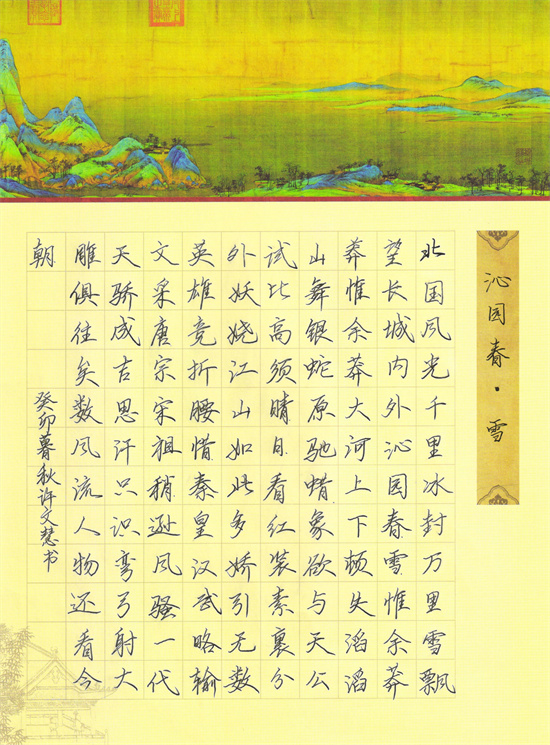 沁园春·雪
北国风光千里冰封万里雪飘
望长城内外沁园春雪惟余莽
莽惟余莽大河上下顿失滔滔
山舞银蛇原驰蜡象欲与天公
试比高须晴日看红装素裹分
外妖娆江山如此多娇引无数
英雄竞折腰惜秦皇汉武略输
文采唐宗宋祖稍逊风骚一代
天骄成吉思汗只识弯弓射大
雕俱往矣数风流人物还看今
朝
癸卯暮秋许文慧书